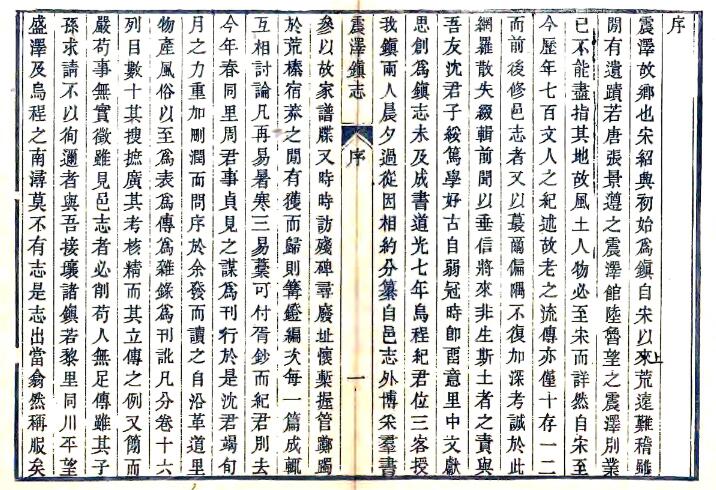 序
震澤故鄉也宋紹興初始爲鎮自宋以來上荒遠難稽雖
閒有遺蹟若唐張景遵之震澤館陸魯望之震澤別業
已不能盡指其地故風土人物必至宋而詳然自宋至
今歷年七百文人之紀述故老之流傳亦僅十存一二
而前後修邑志者又以蕞爾偏隅不復加深考誠於此
網羅散失綴輯前聞以垂信將來非生斯土者之責與
吾友沈君子綏篤學好古自弱冠時卽畱意里中文獻
思創爲鎮志未及成書道光七年烏程紀君位三客授
我鎮兩人晨夕過從因相約分纂自邑志外博采羣書
震澤鎮志
序
一
參以故家譜牒又時時訪殘碑尋廢址懷槧握管躑躅
於荒榛宿莽之閒有獲而歸則篝鐙編次每一篇成輒
互相討論凡再易暑寒三易藁可付胥鈔而紀君別去
今年春同里周君事貞見之謀爲刊行於是沈君竭旬
月之力重加刪潤而問序於余發而讀之自沿革道里
物產風俗以至爲表爲傳爲雜錄爲刊訛凡分卷十六
列目數十其搜摭廣其考核精而其立傳之例又簡而
嚴苟事無實徵雖見邑志者必削苟人無足傳雖其子
孫求請不以徇邇者與吾接壤諸鎮若黎里同川平望
盛澤及烏程之南潯莫不有志是志出當翕然稱服矣